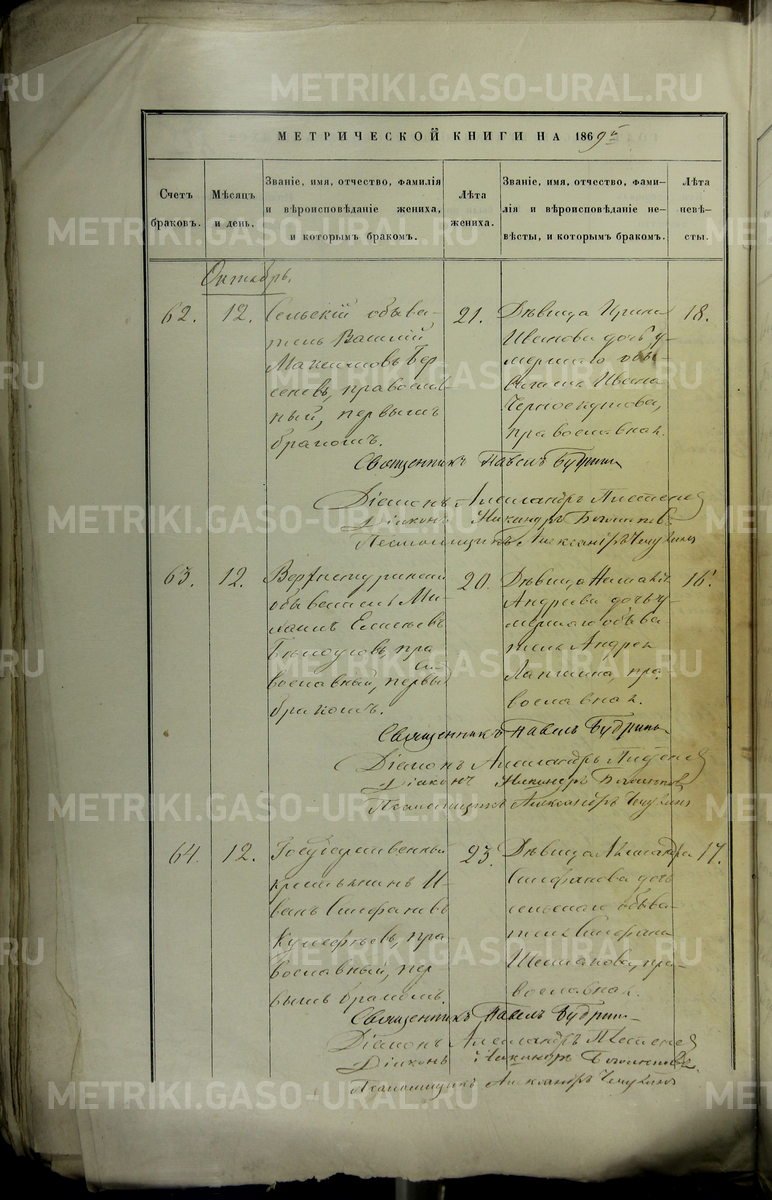 МЕТРИЧЕСКОЙ КНИГИ НА 1869й
Счетъ браковъ.
Мѣсяцъ и день.
Званіе, имя, отчество, фамилія
и вѣроисповѣданіе жениха,
и которымъ бракомъ.
Лѣта жениха.
Званіе, имя, отчество, фами-
лія и вѣроисповѣданіе не-
вѣсты, и которымъ бракомъ.
Лѣта невѣ-
сты.
Октябрь.
62.
12.
Сельскій обыва-
тель Василій
Максимовъ Бер
сеневъ, православ
ный, первымъ
бракомъ.
21.
Дѣвица Ирина
Иванова дочь у-
мершаго обы-
вателя Ивана
Черноскутова,
православная.
18.
Священникъ Павелъ Будринъ
Діаконъ Александръ
Діаконъ Никандръ
Псаломщикъ Александръ
63.
12.
обыватель Ми-
хаилъ
пра
вославный, первый
бракомъ.
20.
Дѣвица
Андреева дочь у-
мершаго обыва-
теля Андрея
Лапшина, пра-
вославная.
16.
Священникъ Павелъ Будринъ
Діаконъ Александръ
Діаконъ Никандръ
Псаломщикъ Александръ
64.
12.
Государственный
крестьянинъ И-
ванъ Стефановъ
пра
вославный, пер
вымъ бракомъ.
23.
Дѣвица Александра
Стефанова дочь
сельскаго обыва-
теля Стефана
пра-
вославная.
17.
Священникъ Павелъ Будринъ
Діаконъ Александръ
Діаконъ Никандръ
Псаломщикъ Александръ
METRIKI.GASO-URAL.RU